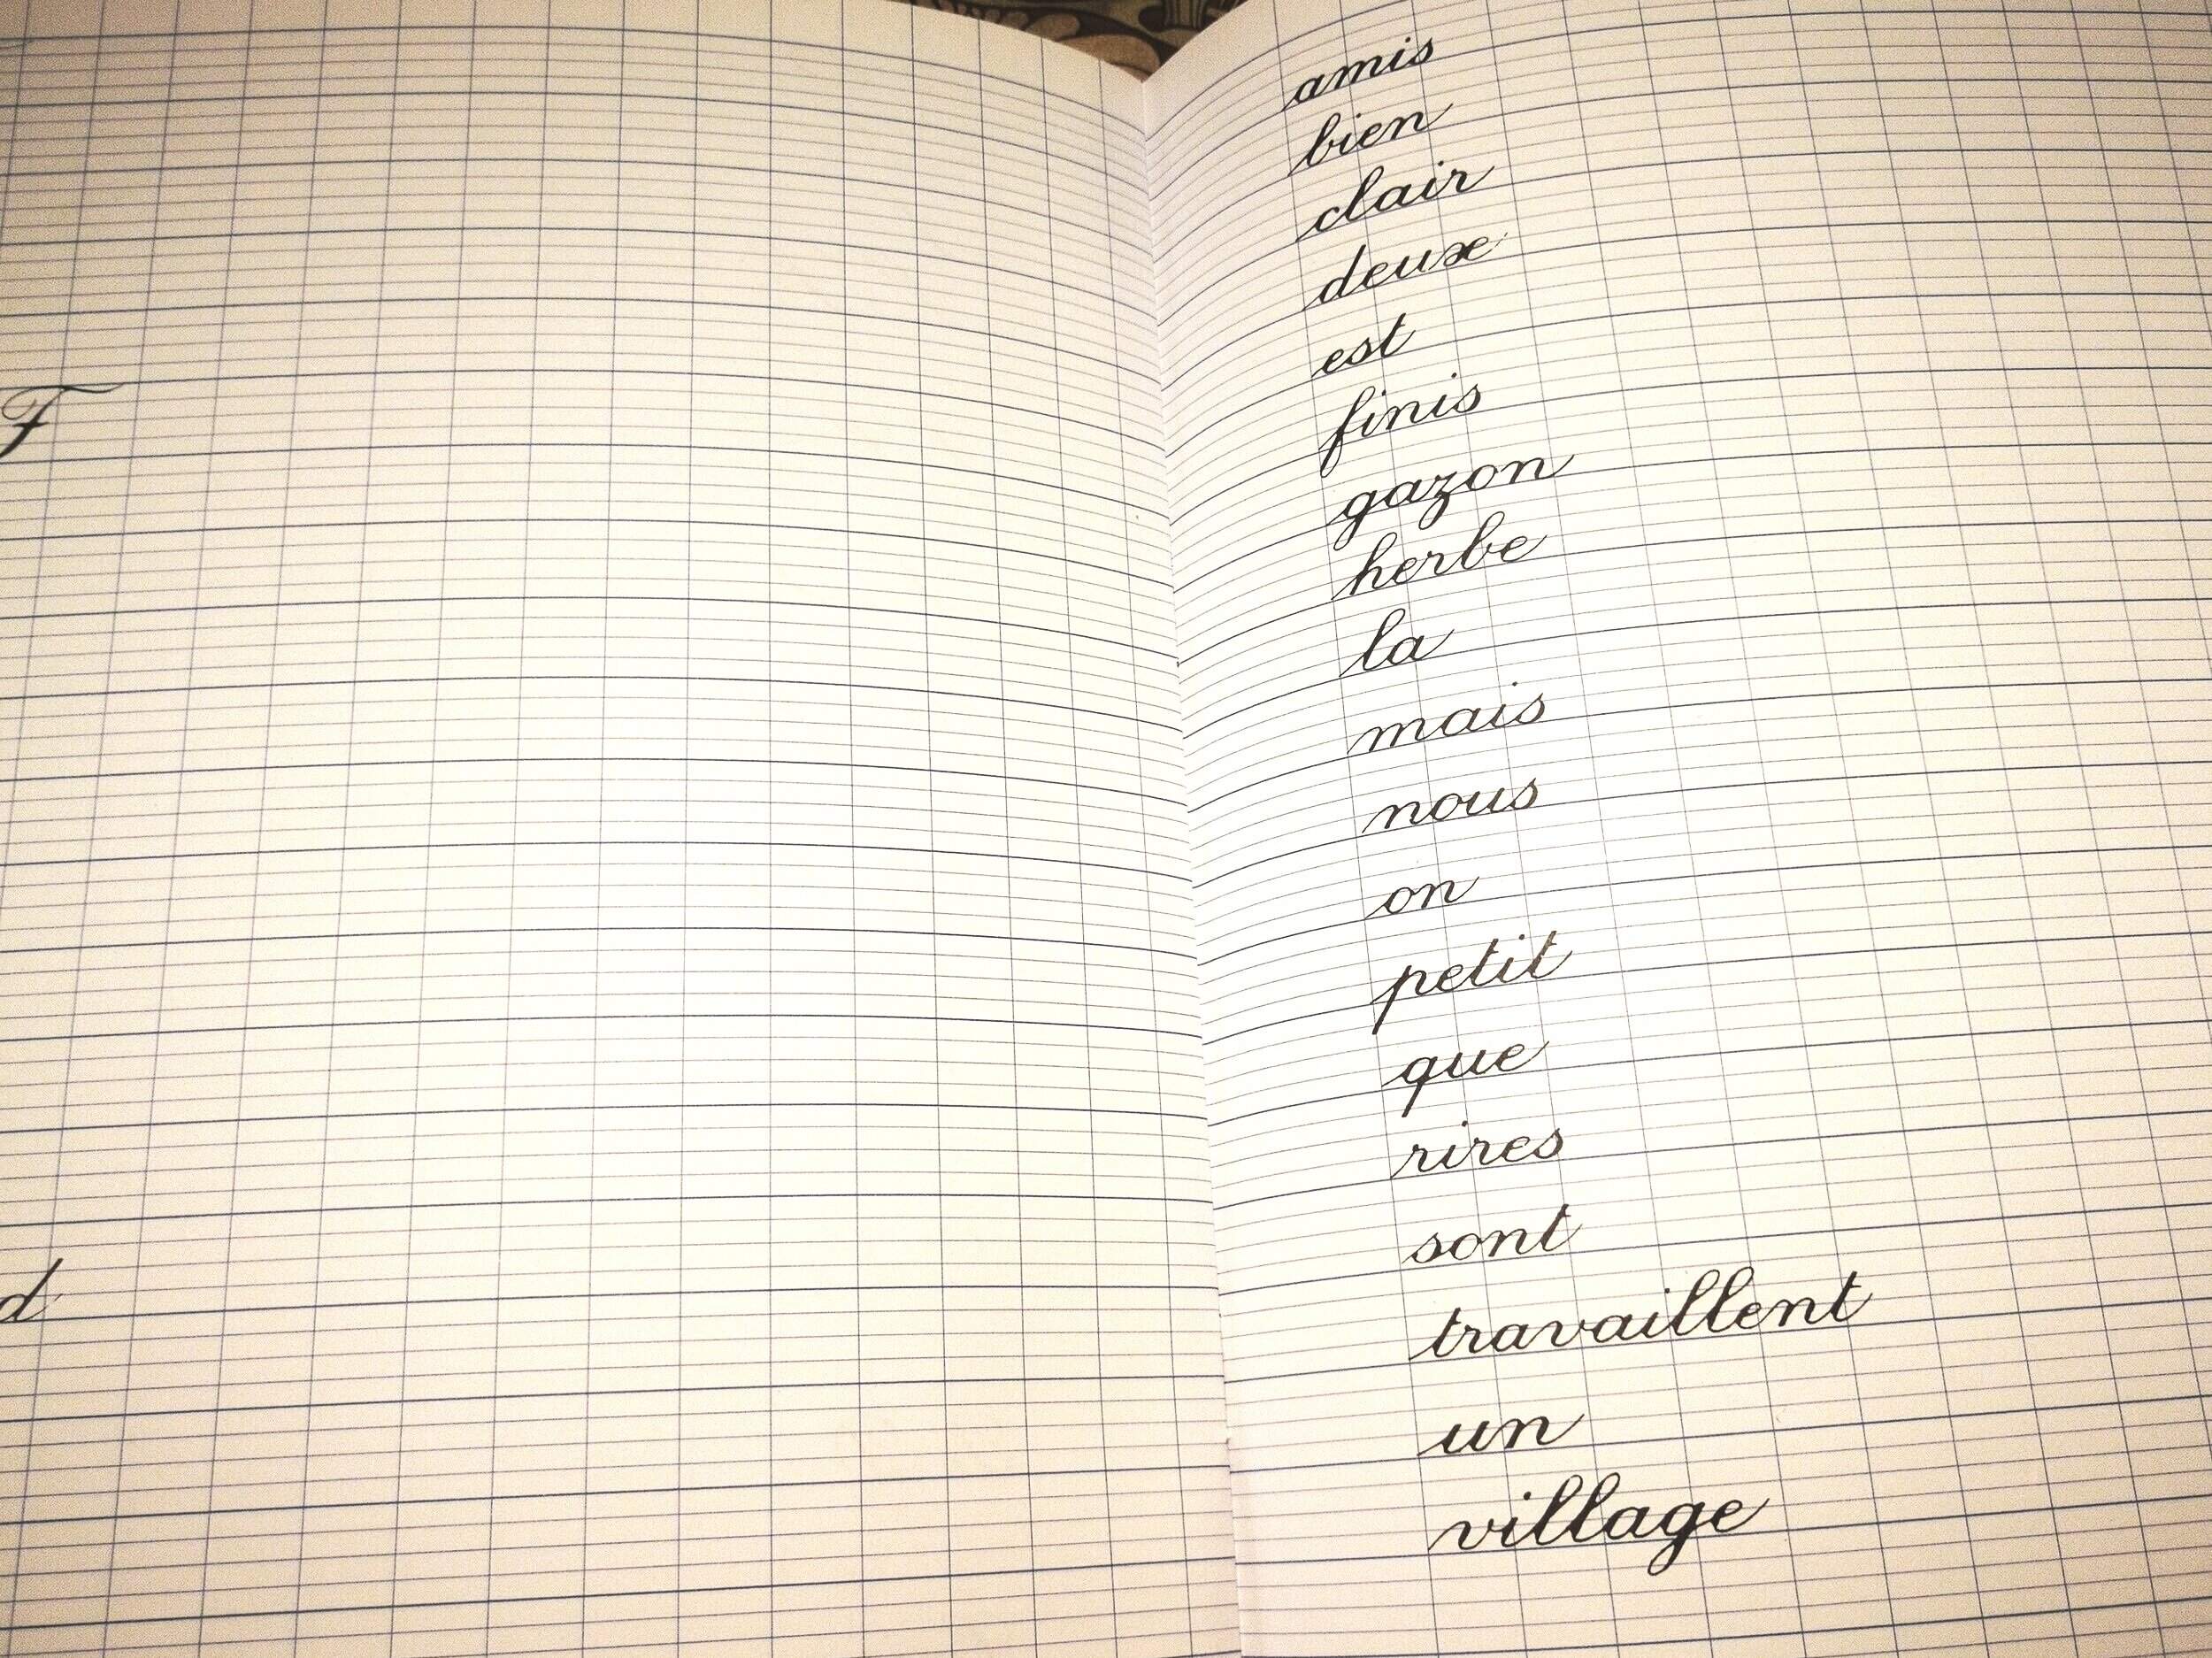 F
d
amis
bien
clair
deux
est
finis
gazon
herbe
la
mais
nous
on
petit
que
rires
sont
travaillent
un
village